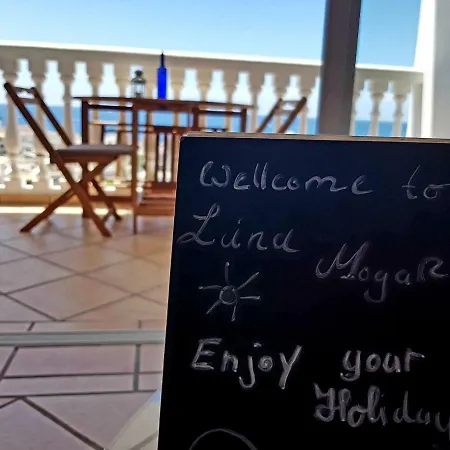 Wellcome to
Luna
Mogar
Enjoy your
Holiday